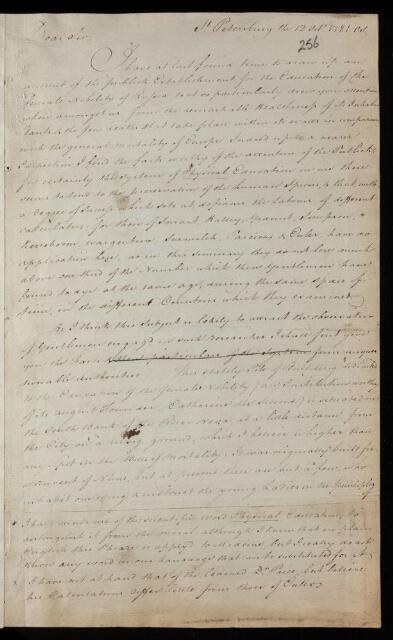 St Petersburg the 12 Oct 1781 O.S.
256
Dear Sir,
I have at last found time to draw up an
account of the publick Establishment for the Education of the
female Nobility of Russia that so particularly drew your attention
when amongst us from the remarkable Healthiness of its Inhabi
tants, & the few deaths that take place within its walls in comparison
with the general mortality of Europe. Indeed upon a nearer
Inspection I find the facts worthy of the attention of the Publick;
for certainly the system of Physical Education in use there
seems to tend to the preservation of the human Species, & that with
a degree of success which sets at defiance the labour of different
calculators, for those of Smart, Halley, Simpson, &
Kersseboom, Wargentin, Susmilch, Parcieux & Euler, have no
application here, as in this Seminary they do not lose much
above one third of the Number which these Gentlemen have
found to dye at the same age, during the same space of
time, in the different Countries which they examined
As I think this Subject is likely to attract the observation
of Gentlemen engag'd in such researches I shall first give
you the particulars of the System from unques
tionable authorities. This stately Pile of Building
to the Education of the female Nobility (an Institution worthy
of its august Foundress, Catherine the Second) is situated on
the South Bank of the River Neva, at a little distance from
the City on a rising ground, which I believe is higher than
any spot in the Bills of Mortality. It was originally built for
a Convent of Nuns, but at present there are but a few, who
inhabit one wing & instruct the young Ladies in the principles
I have made use of the scientific word Physical Education, to
distinguish it from the moral although I know that in plain
English this Phrase is apply'd to Medicine, but I really do not
know any word in our language that can be substituted for it
I have not at hand that of the learned Dr Price, but believe
his Calculations differ little from those of Euler